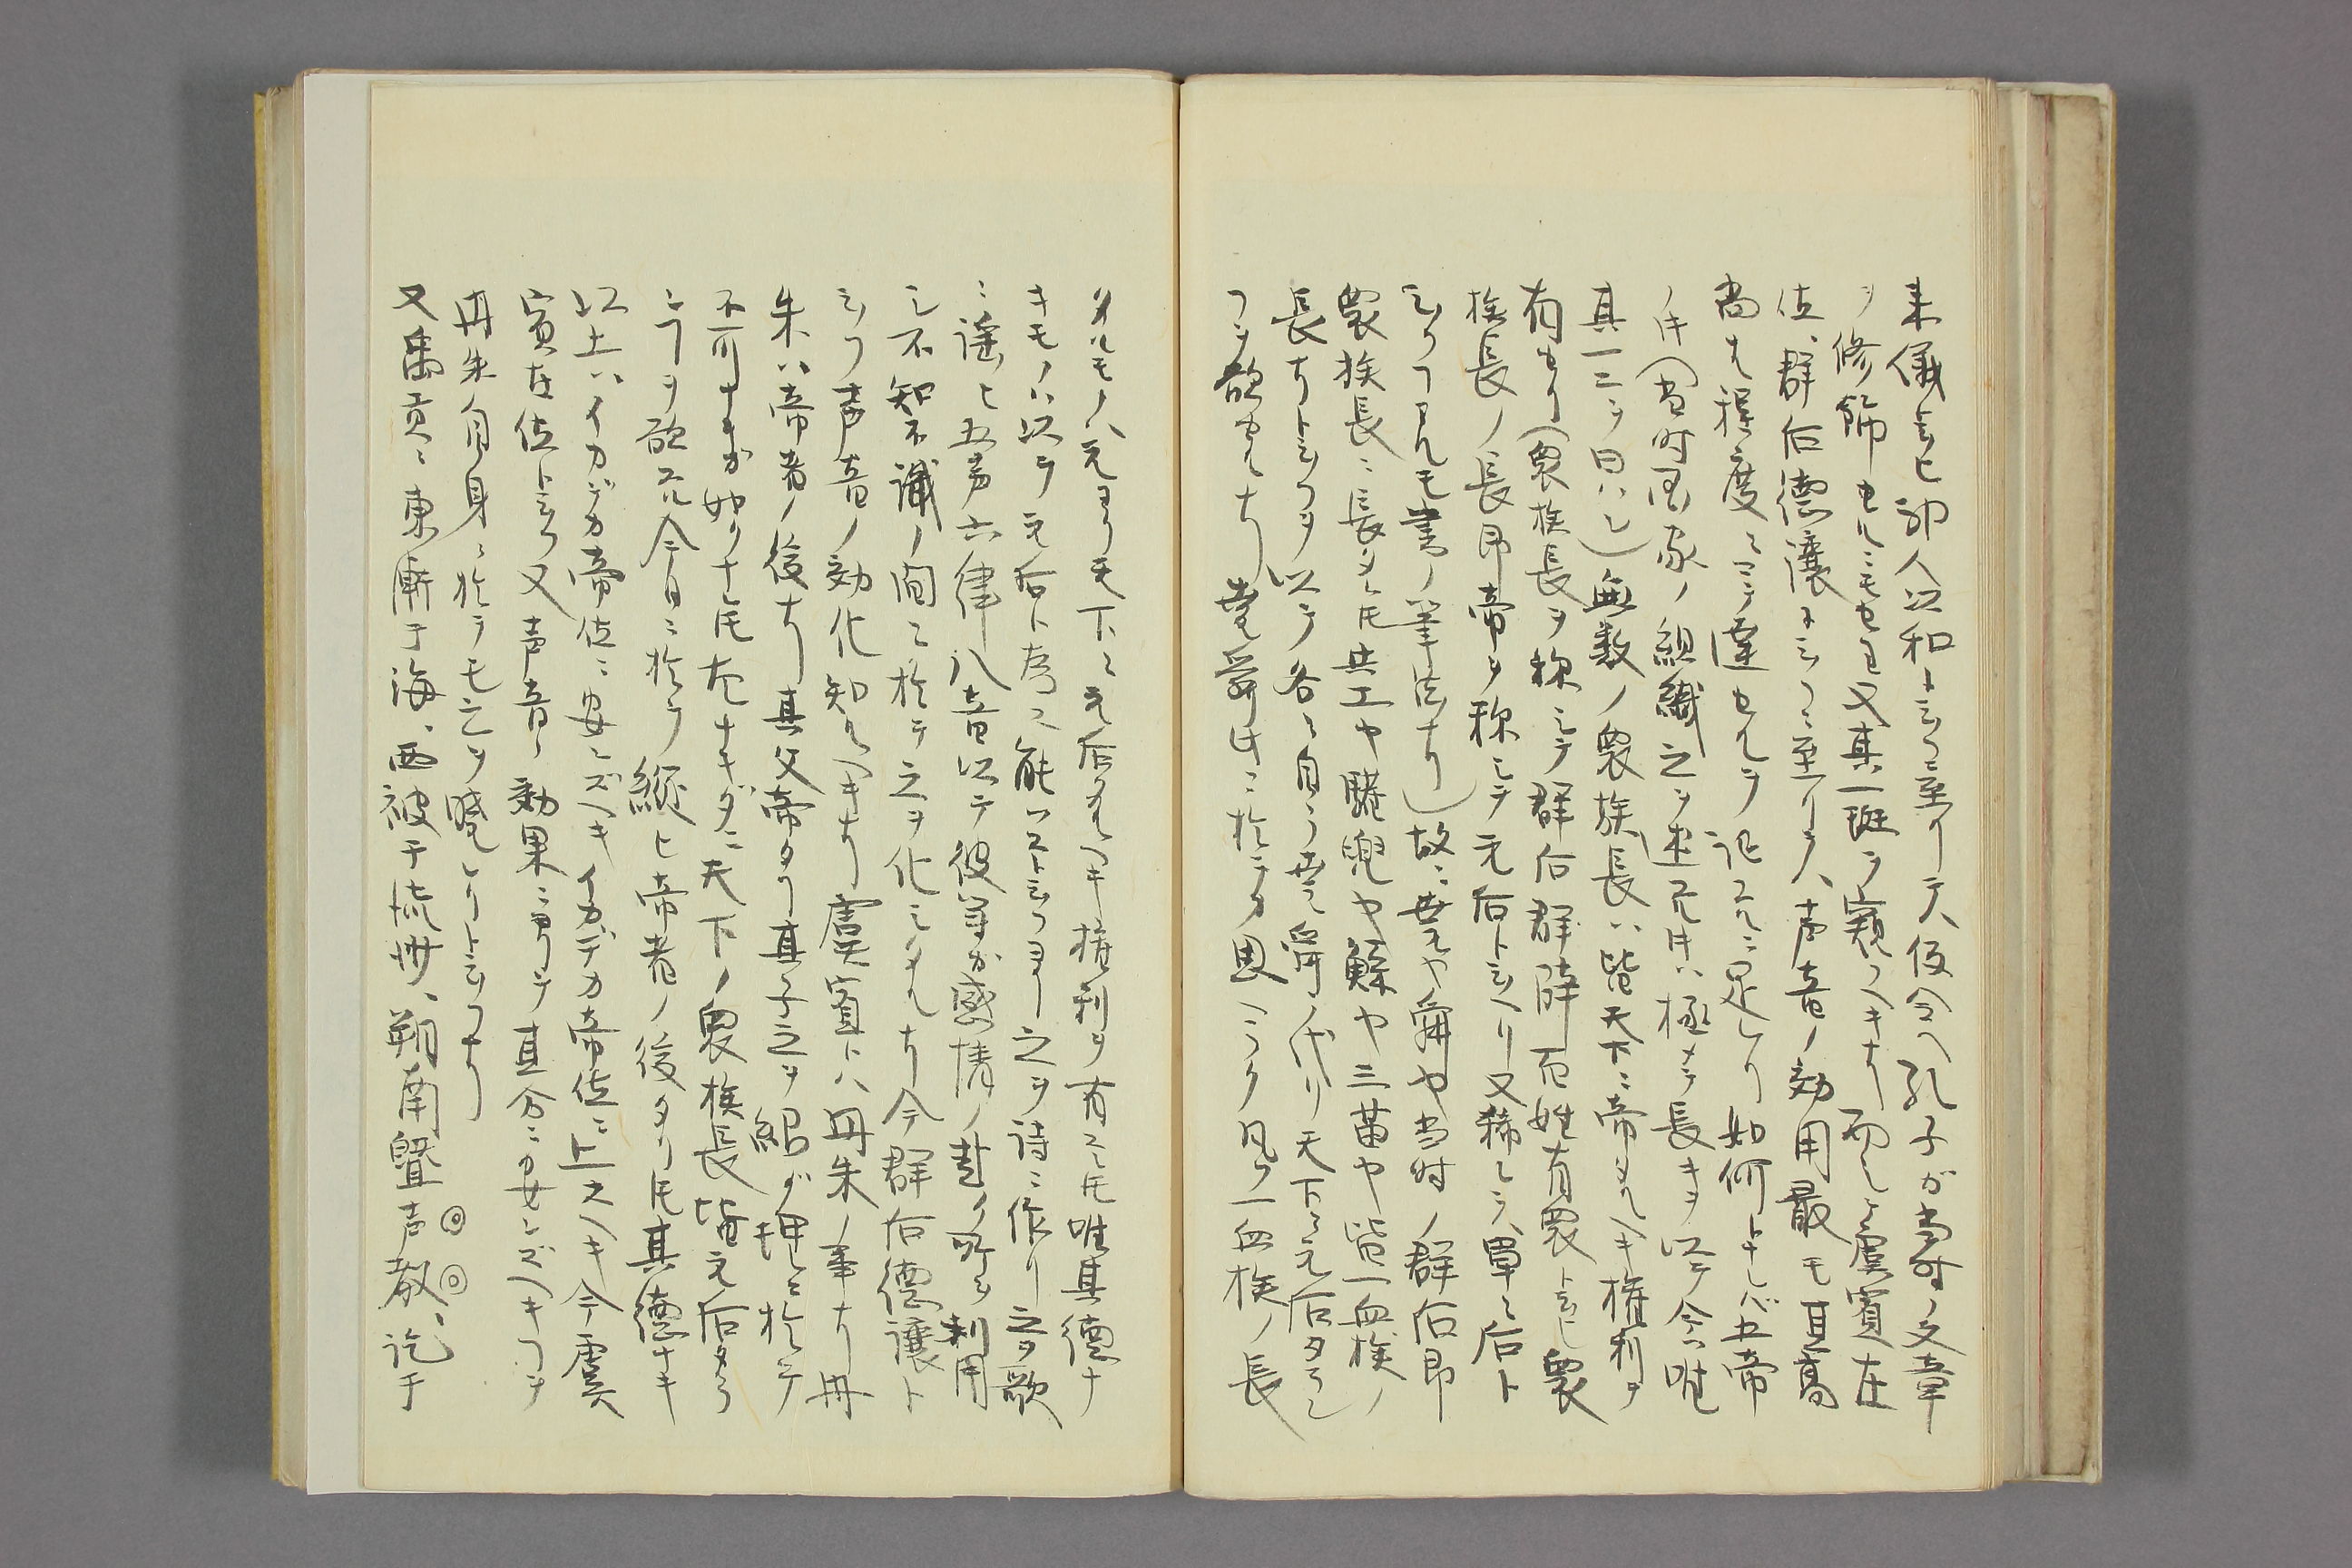 来儀ト云ヒ神人以和ト云フニ至リテハ仮令ヘ孔子ガ当時ノ文章
ヲ修飾セルニモセヨ又其一斑ヲ窺フヘキナリ而シテ虞賓在
位、群后徳譲ト云フニ至リテハ声音ノ効用最モ其高
尚ナ程度ニマテ達セルヲ証スルニ足レリ如何トナレバ五帝
ノ時(当時国家ノ組織之ヲ述フル時ハ極メテ長キヲ以テ今ハ唯
其一二ヲ曰ハン)無数ノ衆族長ハ皆天下ニ帝タルヘキ権利ヲ
有セリ(衆族長ヲ称シテ群后群辟百姓有衆ト云ヒ衆
族長ノ長即帝ヲ称シテ元后ト云ヘリ又稀レニ、単ニ后ト
云フヿアルモ書ノ筆法ナリ)故ニ堯ヤ舜ヤ当時ノ群后即
衆族長ニ長タレ𪜈共工ヤ驩兜ヤ鯀ヤ三苗ヤ皆一血族ノ
長ナリト云フヲ以テ各々自ラ堯舜ノ代リ天下ニ元后タラン
ヿヲ欲セルナリ堯舜時ニ於テタ思ヘラク凡ソ一血族ノ長
タルモノハ元ヨリ天下ニ元后タルヘキ権利ヲ有スレ𪜈唯其徳ナ
キモノハ以テ元后ト為ス能ハスト云フヨリ之ヲ詩ニ作リ之ヲ歌
ニ謡ヒ五声六律八音以テ彼等ガ感情ノ赴ク所ヲ利用
シ不知不識ノ間ニ於テ之ヲ化シタルナリ今群后徳譲ト
云フ声音ノ効化知ルヘキナリ虞賓トハ丹朱ノ事ナリ丹
朱ハ帝者ノ後ナリ其父帝タリ其子之ヲ紹グ理ニ於テ
不可ナキガ如クナレ𪜈左ナキダニ天下ノ衆族長皆元后タラ
ンヿヲ欲スル今日ニ於テ縦ヒ帝者ノ後タリ𪜈其徳ナキ
以上ハイカデカ帝位ニ安ンズヘキイカデカ帝位ニ上スヘキ今虞
賓在位ト云フ又声音ノ効果ニヨリテ其分ニ安ンズヘキヿヲ
丹朱ノ自身ニ於テモ之ヲ暁レリト云フナリ
又禹貢ニ東漸于海、西被于流沙、朔南曁声教、訖于